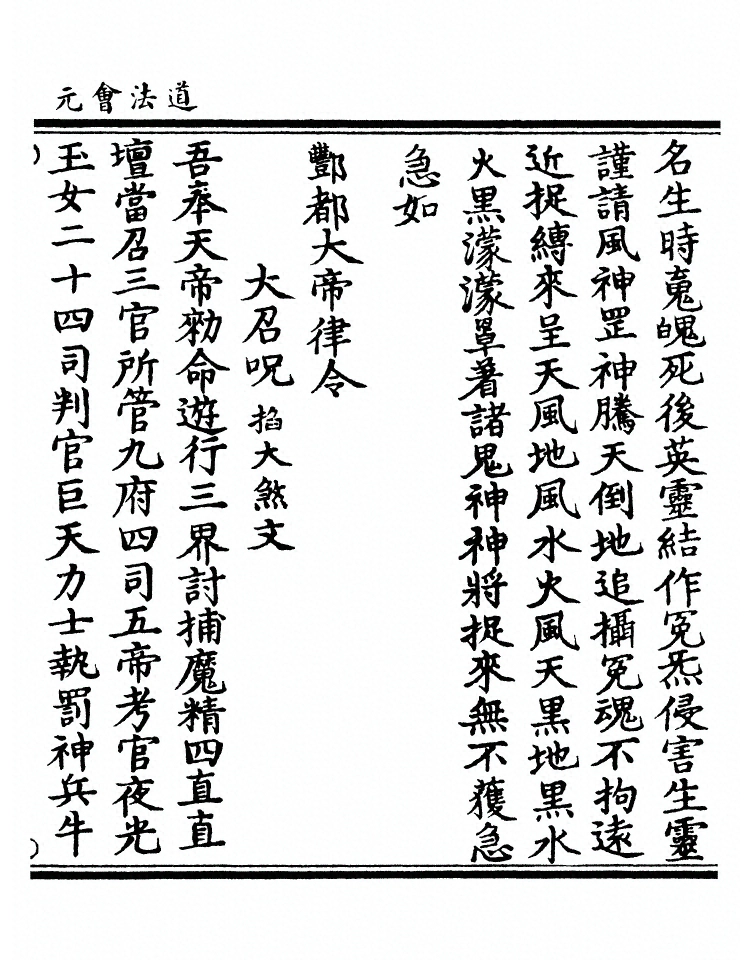 道法會元
名生時䰟魄死後英靈結作冤炁侵害生靈
謹請風神罡神騰天倒地追攝冤魂不拘遠
近捉縛來呈天風地風水火風天黑地黑水
火黑濛濛罩著諸鬼神神將捉來無不獲急
急如
酆都大帝律令
大召呪掐大煞文
吾奉天帝勑命遊行三界討捕魔精四直直
壇當召三官所管九府四司五帝考官夜光
玉女二十四司判官巨天力士執罰神兵牛